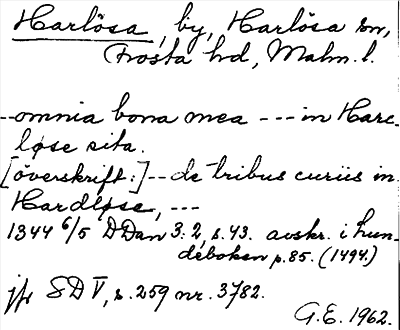 Harlösa, by, Harlösa sn,
Frosta hd, Malm. l.
--omnia bona mea --- in Harc-
løse sita.
[överskrift:]--de tribus curiis in
Hardløse, ---
1344 6/5 DDan 3:2, s.43. avskr. i hun-
deboken p.85. (1494.)
jfr SD V, s.259 nr. 3782.
G.E. 1962.